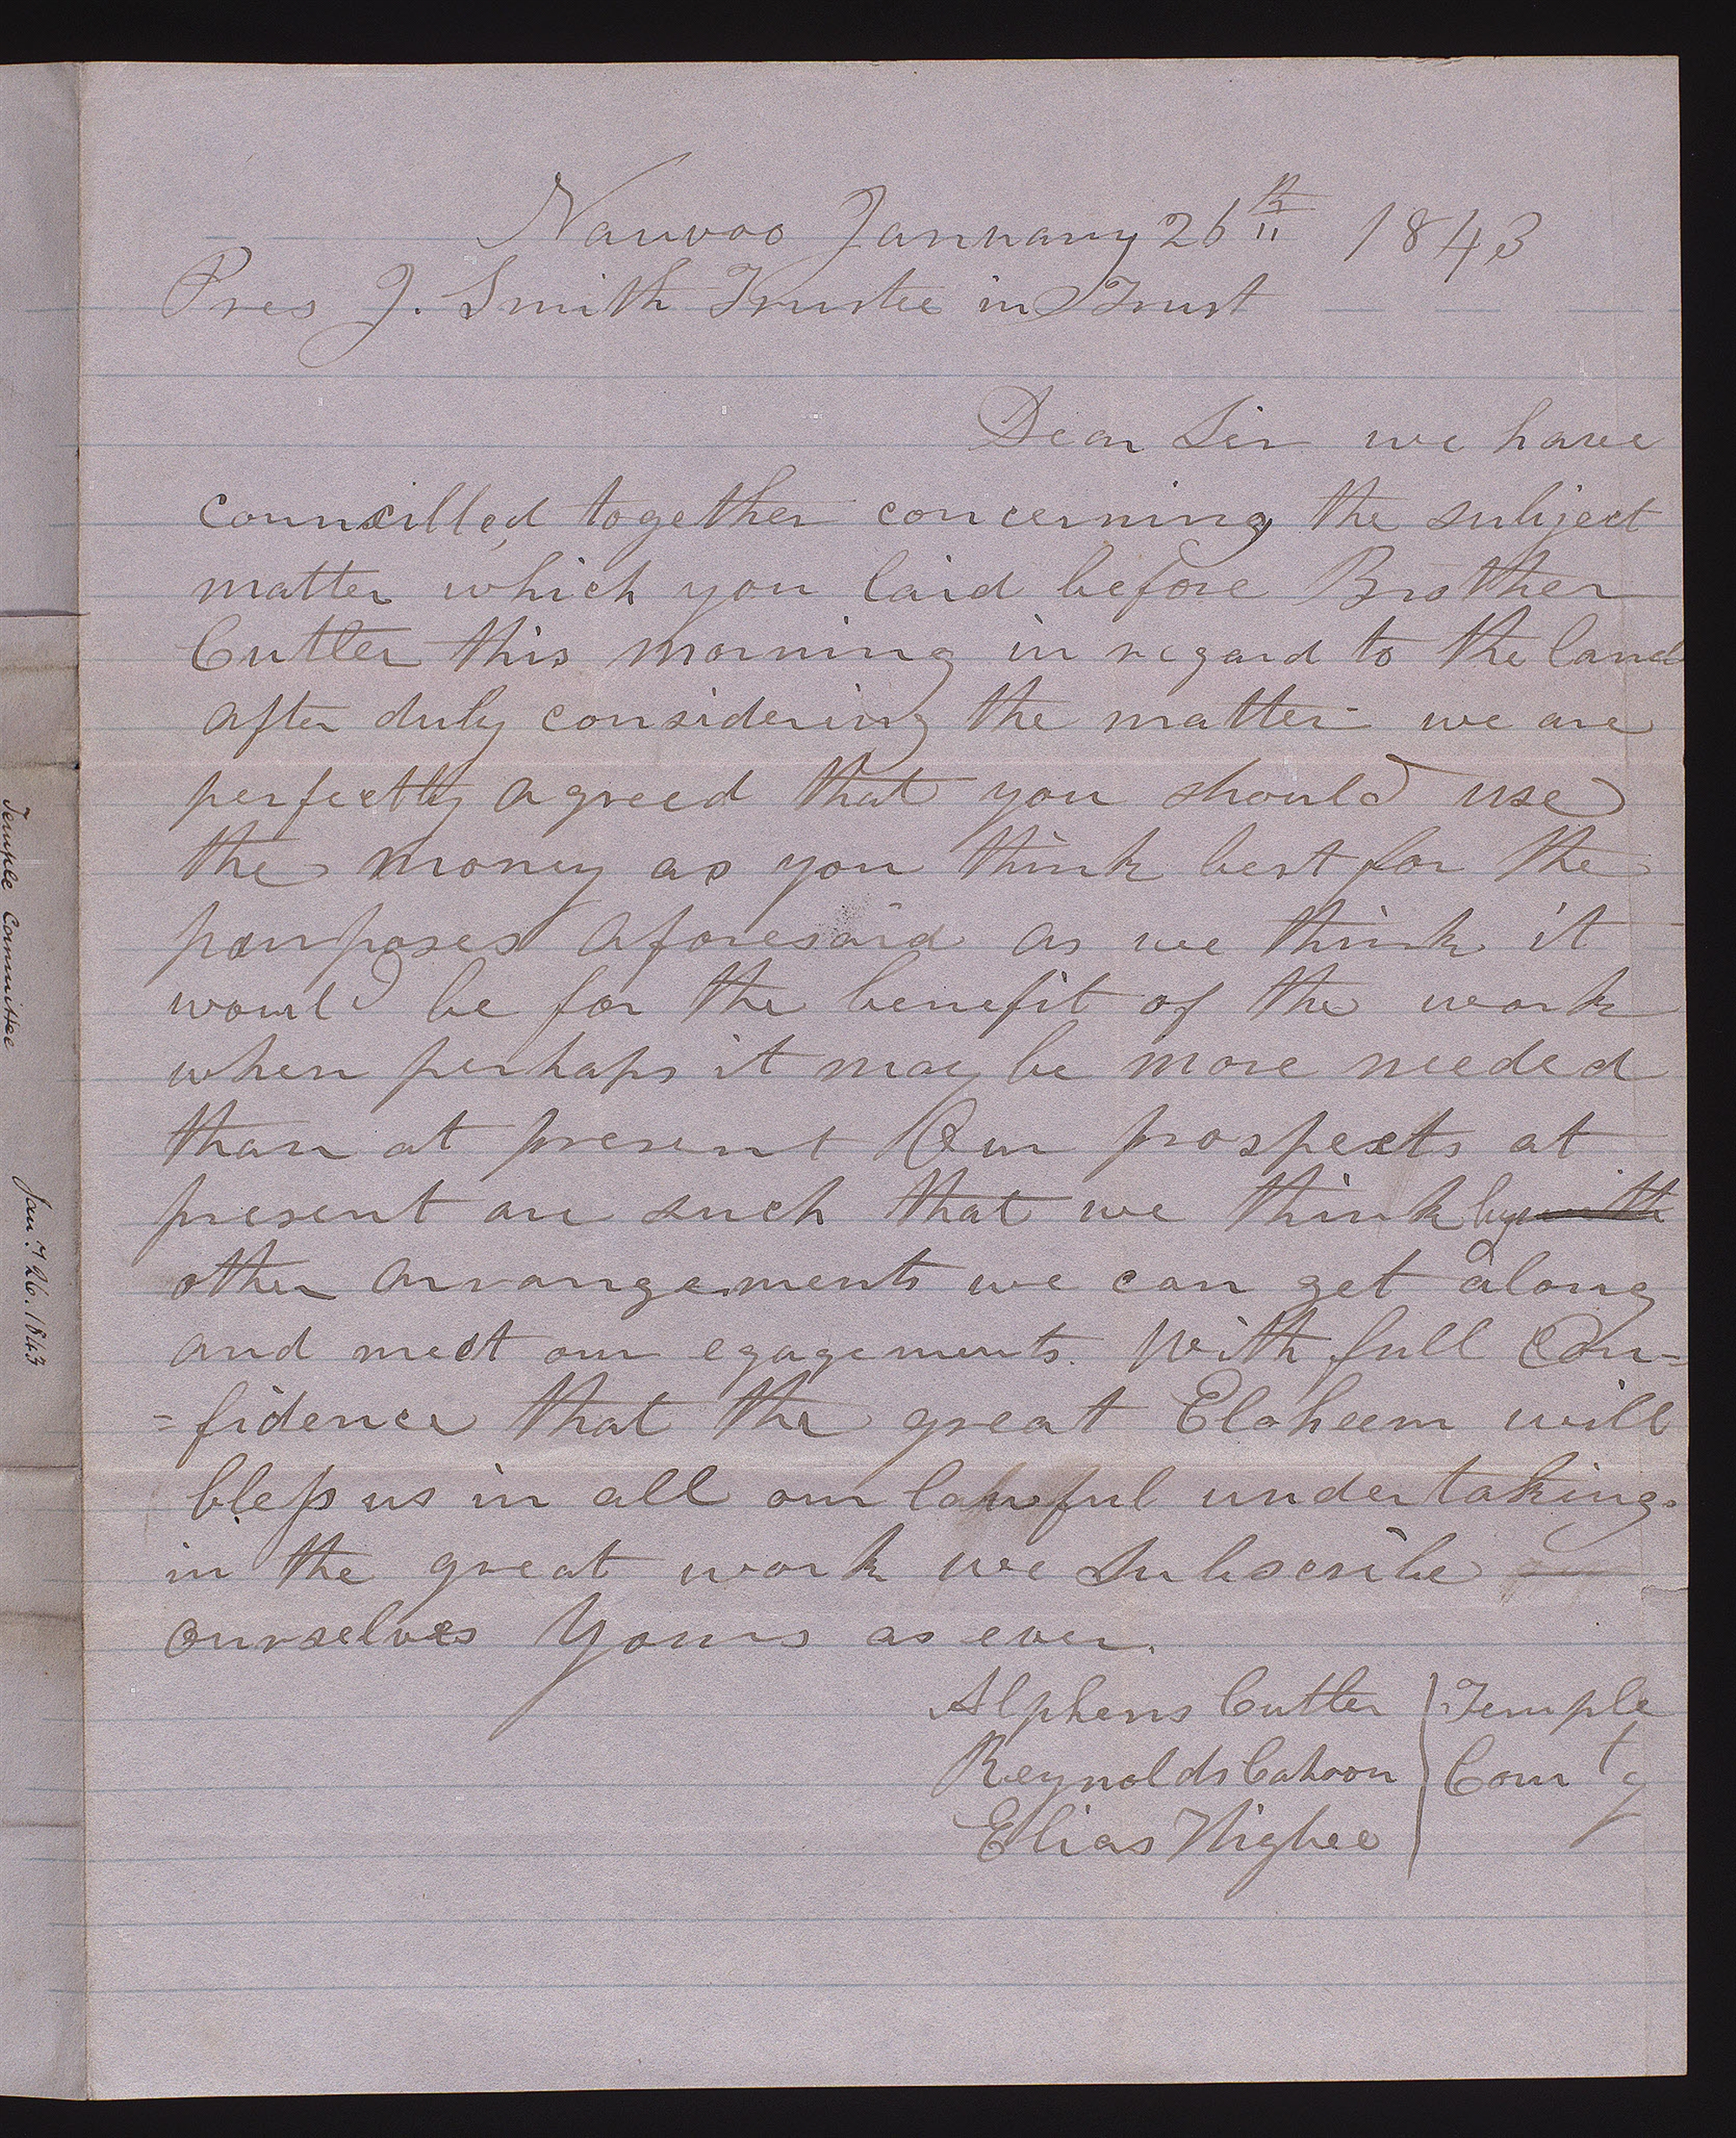 Nauvoo January 26th 1843
Pres J. Smith Trustee in Trust
Dear Sir we have
councilled together concerning the subject
matter which you laid before Brother
Cutler this morning in regard to the land
after duly considering the matter we are
perfectly agreed that you should use
the money as you think best for the
purposes aforesaid as we think it
would be for the benefit of the work
when perhaps it may be more needed
than at present Our prospects at
present are such that we think by with
other arrangements we can get along
and meet our egagements. With full Con=
=fidence that the great Eloheem will
bless us in all our lawful undertakings
in the great work we subscribe
ourselves Yours as ever.
Alpheus Cutler Temple
Reynolds Cahoon Comty
Elias Higbee
Temple Committee
Jany 26. 1843